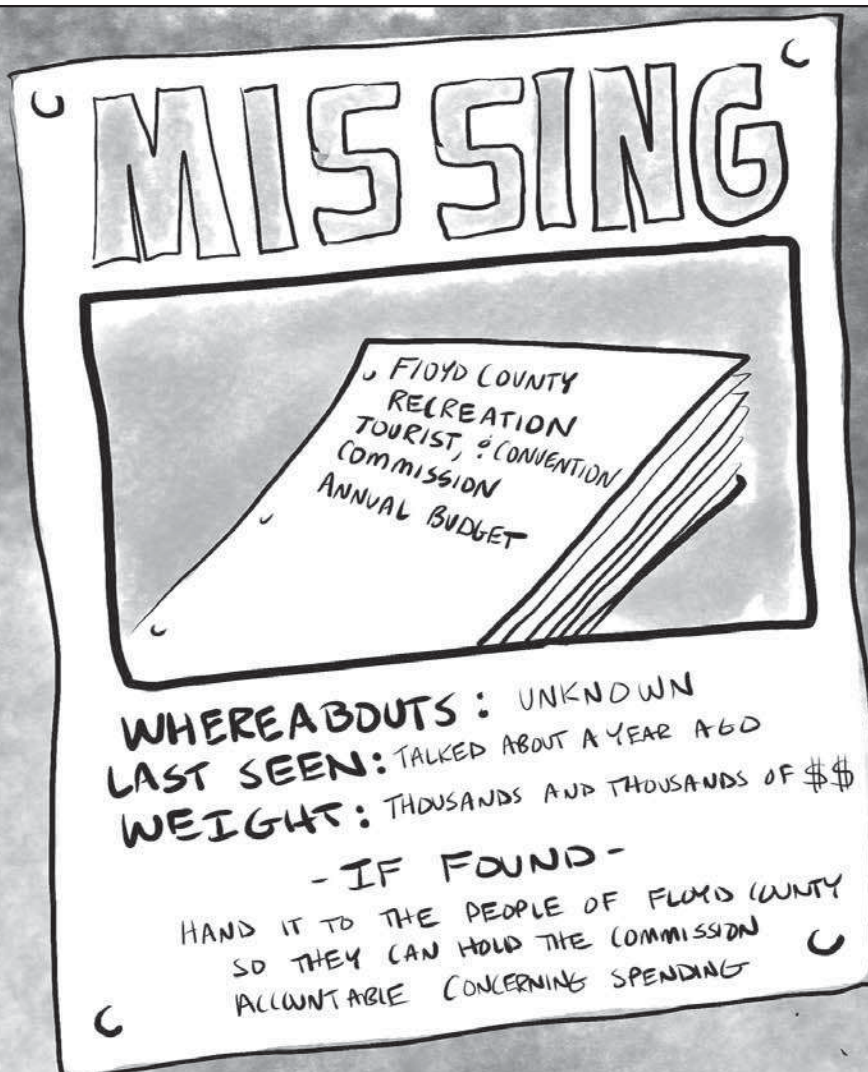 MISSING
FLOYD COUNTY
RECREATION
TOURIST, & CONVENTION
COMMISSION
ANNUAL BUDGET
WHEREABOUTS: UNKNOWN
LAST SEEN: TALKED ABOUT A YEAR AGO
WEIGHT: THOUSANDS AND THOUSANDS OF $$
- IF FOUND -
HAND IT TO THE PEOPLE OF FLOYD COUNTY
SO THEY CAN HOLD THE COMMISSION
ACCOUNTABLE CONCERNING SPENDING